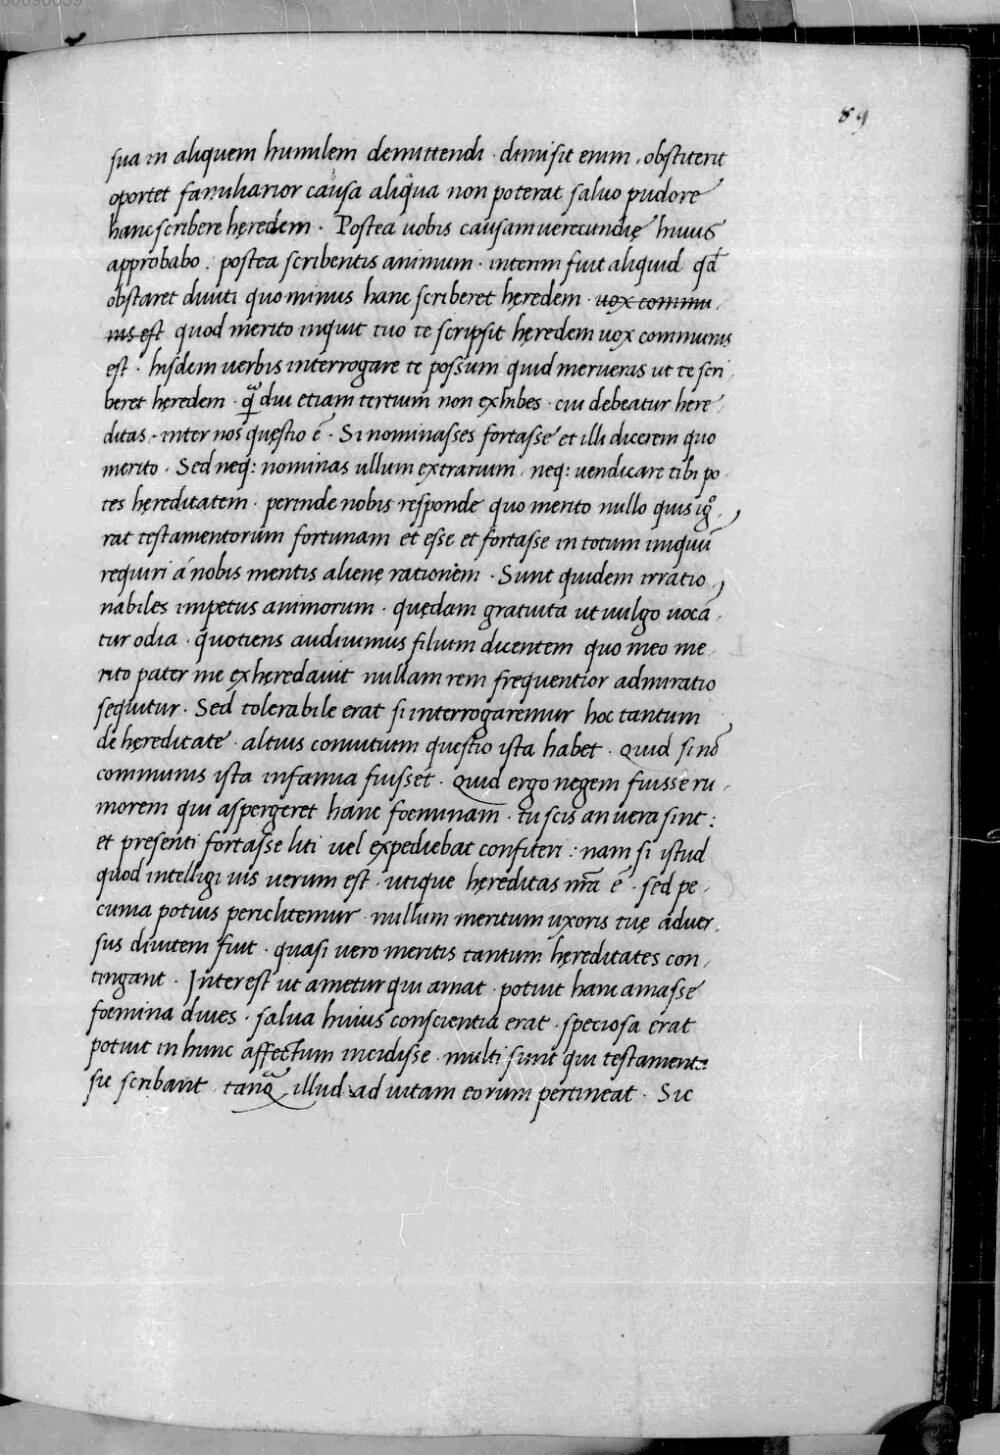 89
sua in aliquem humilem demittendi · dimisit enim · obstiterit
oportet familiarior causa aliqua non poterat saluo pudore
hanc scribere hęredem · Postea uobis causam uerecundię huius
approbabo · postea scribentis animum · interim fuit aliquid qđ
obstaret diuiti quo minus hanc scriberet hęredem · uox commu
nis est quod merito inquit tuo te scripsit hęredem uox communis
est · hisdem uerbis interrogare te possum quid merueras ut te scri
beret hęredem · qᷓ diu etiam tertium non exhibes · cui debeatur here
ditas · inter nos quęstio ē · Si nominasses fortasse et illi dicerem quo
merito · Sed neq: nominas ullum extrarium · neq: uendicare tibi po
tes hereditatem · perinde nobis responde quo merito nullo quis igͦ
rat testamentorum fortunam et esse et fortasse in totum iniquū
requiri a nobis mentis alienę rationem · Sunt quidem irratio
nabiles impetus animorum · quędam gratuita ut uulgo uocā
tur odia · quotiens audiuimus filium dicentem quo meo me
rito pater me exheredauit nullam rem frequentior admiratio
sequitur · Sed tolerabile erat si interrogaremur hoc tantum
de hereditate · altius conuitium questio ista habet · Quid si nō
communis ista infamia fuisset · Quid ergo negem fuisse ru
morem qui aspergeret hanc foeminam · tu scis an uera sint :
et presenti fortasse liti uel expediebat confiteri : nam si istud
quod intelligi uis uerum est · utique hęreditas nr̄a ē · sed pe
cunia potius periclitemur · nullum meritum uxoris tuę aduer
sus diuitem fuit · quasi uero meritis tantum hęreditates con
tingant · Interest ut ametur qui amat · potuit hanc amasse
foemina diues · salua huius conscientia erat · speciosa erat
potuit in hunc affectum incidisse · multi sunt qui testamenta
sic scribant · tanqᷓ illud ad uitam eorum pertineat · Sic